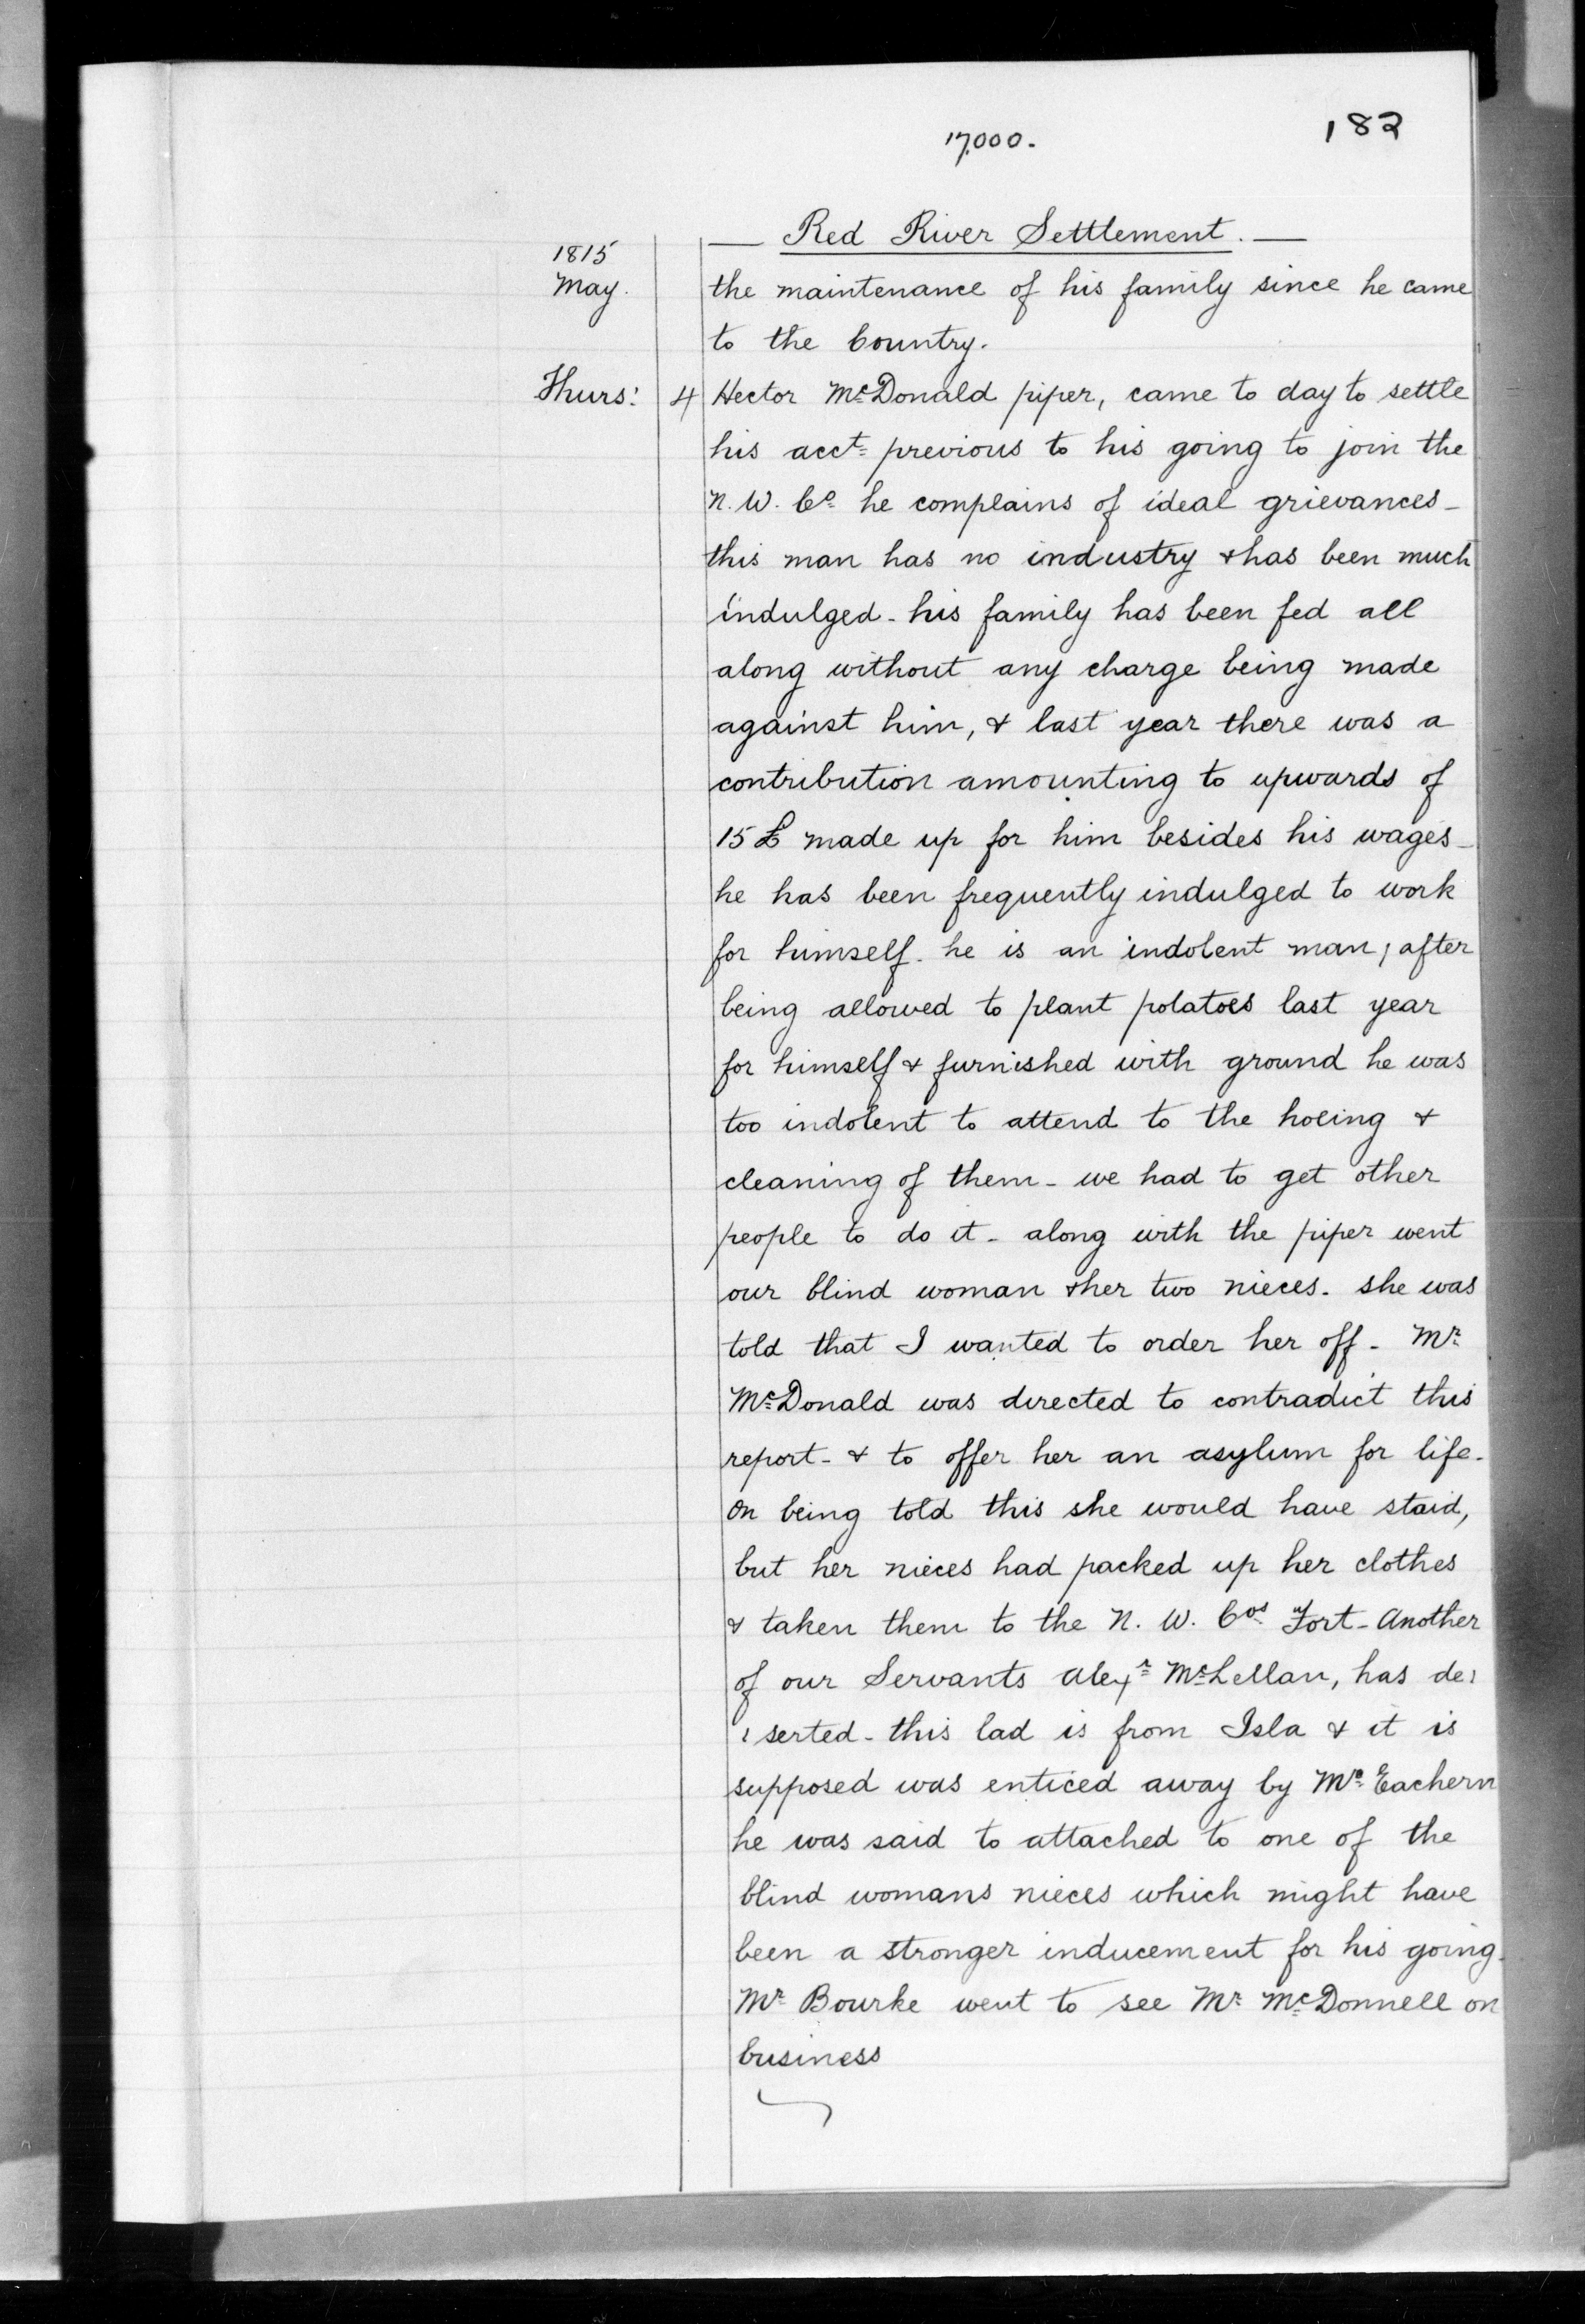 182
17,000.
Red River Settlement.
1815
May. the maintenance of his family since he came
to the Country.
Thurs: 4 Hector McDonald piper, came to day to settle
his acct previous to his going to join the
N. W. Co he complains of ideal grievances -
this man has no industry & has been much
indulged - his family has been fed all
along without any charge being made
against him, & last year there was a
contribution amounting to upwards of
15 £ made up for him besides his wages -
he has been frequently indulged to work
for himself. he is an indolent man, after
being allowed to plant potatoes last year
for himself & furnished with ground he was
too indolent to attend to the hoeing &
cleaning of them - we had to get other
people to do it - along with the piper went
our blind woman & her two nieces. she was
told that I wanted to order her off - Mr
McDonald was directed to contradict this
report - & to offer her an asylum for life.
On being told this she would have staid,
but her nieces had packed up her clothes
& taken them to the N. W. Cos Fort - Another
of our Servants Alexr McLellan, has de:
: serted - this lad is from Isla & it is
supposed was enticed away by Mc Eachern
he was said to attached to one of the
blind womans nieces which might have
been a stronger inducement for his going.
Mr Bourke went to see Mr McDonnell on
business